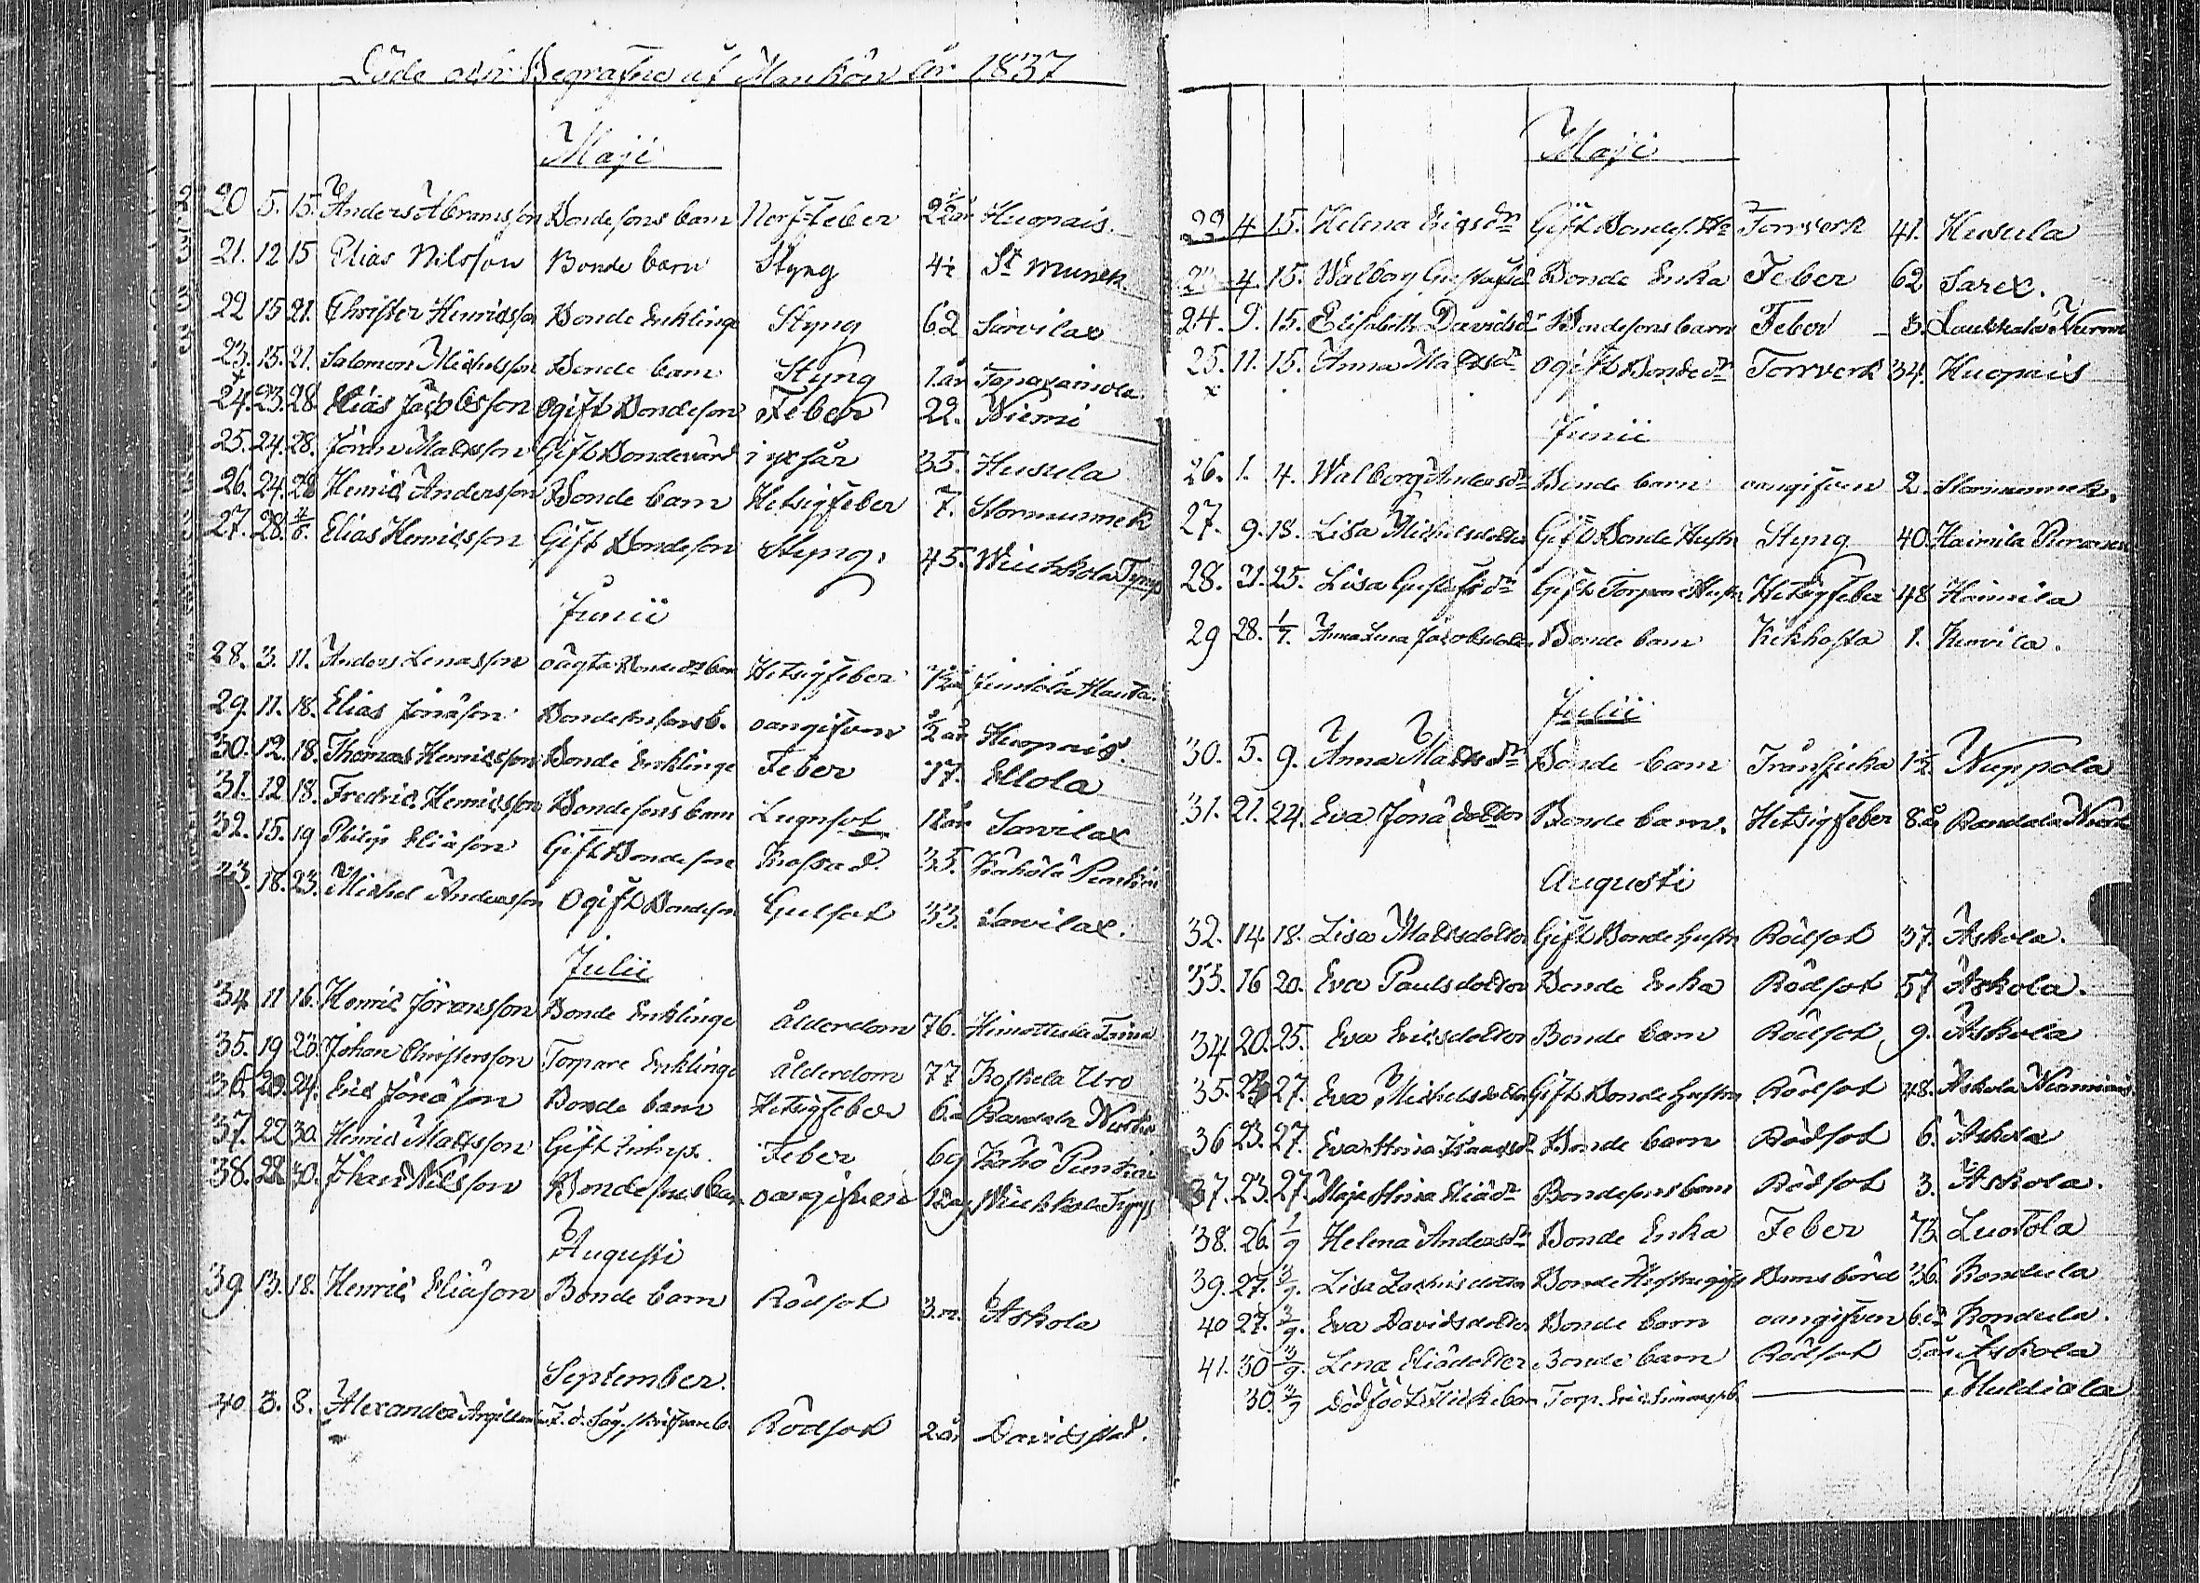 Döde och Begrafne af Mankön år 1837
Maji
20 5. 15. Anders Abramsson Bondesons barn Nerf-Feber 2½ år Huopais.
21. 12 15 Elias Nilsson Bonde barn Styng 4½ St Munek
22 15 21. Christer Henricsson Bonde Enklinge Styng 62 Sarvilax
23. 15. 21. Salomon Michelsson Bonde barn Styng 1 år
24. 23. 28 Elias Jacobsson Ogift Bondeson Feber 22. Niemi
25. 24. 28. Jöran Mattsson Gift Bonde 35. Husula
26. 24. 28 Henric Andersson Bonde barn Hetsigfeber 7. Stormunnek
27. 28. 4/6. Elias Henricsson Gift Bondeson Styng. 45. Wiichkola Tyrys
Junii
28. 3. 11. Anders Lenasson oägta Hetsigfeber
29. 11. 18. Elias Jonäson oangifven ½ år Huopais.
30. 12. 18. Thomas Henricsson Bonde Enklinge Feber 77. Ellola
31. 12 18. Fredric Henricsson Bondesons barn Lugnsot 12 år Sarvilax
32. 15. 19 Philip Eliäson Gift Bondeson 35.
33. 18. 23. Michel Andersson Ogift Bondeson Gulsot 33. Sarvilax.
Julii
34 11 16. Henric Jöransson Bonde Enklinge ålderdom 76.
35. 19 23. Johan Christersson Torpare Enklinge ålderdom 77 Koskela Uro
36. 20. 24. Eric Jonäson Bonde barn Hetsigfeber 6. Randala
37. 22 30. Henric Mattsson Gift Feber 69
38. 28 30. Johan Nilsson Bondesons barn oangifven 12 dag Wiichkola Tyrys
Augusti
39 13. 18. Henric Eliäson Bonde barn Rödsot 3 m. Askola
September.
40. 3. 8. Alexander Rödsot 2 år Davidstad.
Maji
22 4. 15. Helena Ericsdr Gift Torrverk 41. Husula
23 4. 15. Walborg Gustafsd Bonde Enka Feber 62 Sarex.
24. 9. 15. Elisabeth Davidsdr Bondesons barn Feber 3. Laukkala Nurmi
25. 11. 15. Anna Mattsdr ogift Bondedr Torrverk 34. Huopais
Junii
26. 1. 4. Walborg Andersdr Bonde barn oangifven 2. Stormunnek.
27. 9. 18. Lisa Michelsdotter Gift Bonde Hustru Styng 40. Haimila
28. 21. 25. Lisa Gustafsdr Gift Torpare Hustru Hetsigfeber 48 Haimila
29 28. 1/7. Anna Lena Jacobsdotter Bonde barn Kikhosta 1. Kurvila.
Julii
30. 5. 9. Anna Mattsdr Bonde barn Trånsjuka 1½ Nuppola
31. 21. 24. Eva Jonädotter Bonde barn. Hetsigfeber 8 år Randala
Augusti
32. 14. 18. Lisa Mattsdotter Gift Bonde hustru Rödsot 37. Askola.
33. 16 20. Eva Paulsdotter Bonde Enka Rödsot 57 Askola.
34 20. 25. Eva Ericsdotter Bonde barn Rödsot 9. Askola
35. 23 27. Eva Michelsdotter Gift Bonde hustru Rödsot 48. Askola
36 23. 27. Eva Stina Isaacsdr Bonde barn Rödsot 6. Askola
37. 23. 27. Maja Stina Eliädr Bondesons barn Rödsot 3. Askola.
38. 26. 1/9 Helena Andersdr Bonde Enka Feber 73 Luotola
39. 27. 3/9. Lisa Bonde Barnsbörd 36. Kondula
40 27. 3/9. Eva Davidsdotter Bonde barn oangifven 6. Kondula.
41. 30 3/9. Lena Eliädotter Bonde barn Rödsot 5 år Askola
30. 3/9 Dödfödt Flickebarn Torp. Eric Simonss b. Muldiala